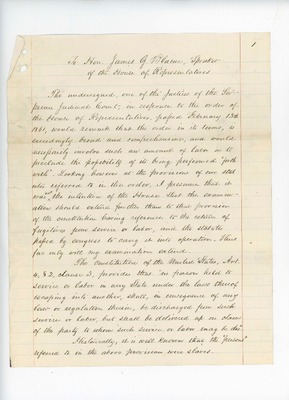 1
To Hon. James G. Blaine, Speaker
of the House of Representatives
The undersigned, one of the Justices of the Su-
preme Judicial Court, in response to the order of
the House of Representatives, passed February 13th
1861, would remark that the order in its terms, is
exceedingly broad and comprehensive, and would
necessarily involve such an amount of labor as to
preclude the possibility of its being performed "forth
with". Looking however at the provisions of our stat
utes referred to in the order, I presume that it
was the intention of the House that the examin-
ation should extend further than to that provision
of the constitution having reference to the return of
fugitives from service or labor, and the statutes
passed by congress to carry it into operation. Thus
far only will my examination extend.
The Constitution of the United States, Art.
4, § 2, clause 3, provides that "no person held to
service or labor in any State under the laws thereof
escaping into another, shall, in consequence of any
law or regulation therein, be discharged from such
service or labor, but shall be delivered up on claim
of the party to whom such service or labor may be due"
Historically, it is well known that the "persons"
referred to in the above provision were slaves.